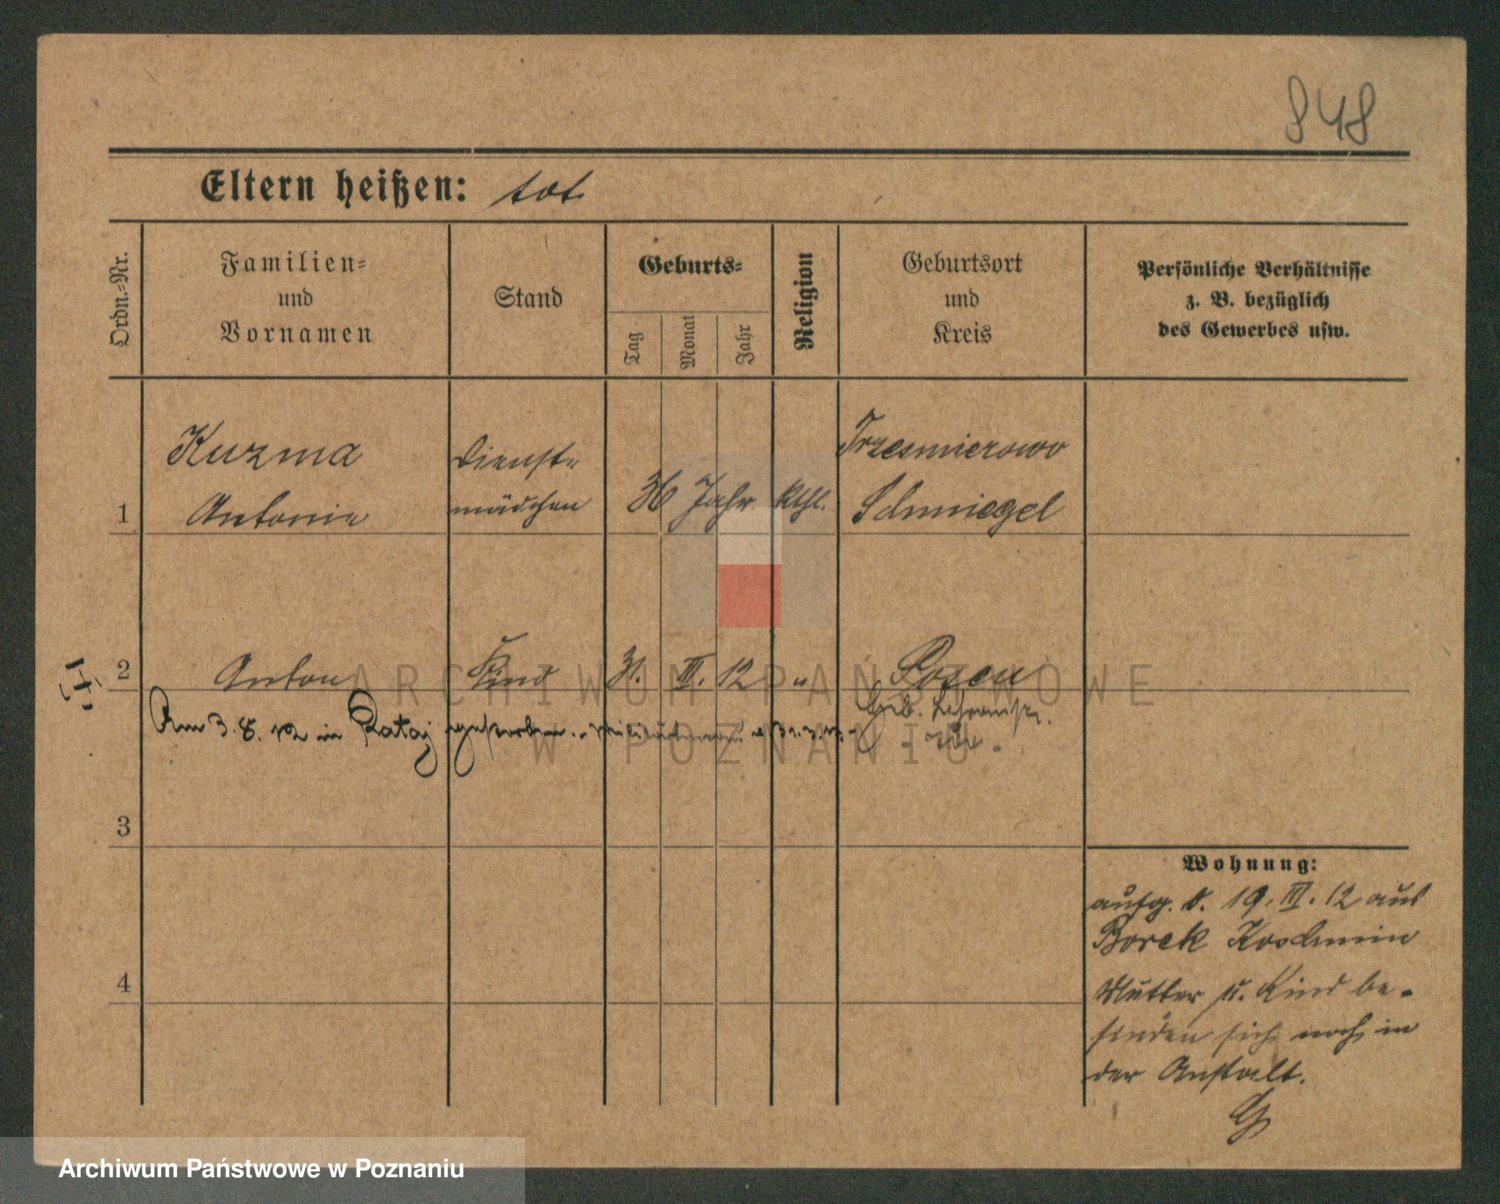 848
Eltern heißen: tot
Ordn.-Nr.
Familien-
und
Vornamen
Stand
Geburts-
Tag
Monat
Jahr
Religion
Geburtsort
und
Kreis
Persönliche Verhältnisse
z. B. bezüglich
des Gewerbes usw.
1
Kuzma
Antonie
Dienst-
mädchen
36 Jahr
kthl.
Trzesmierowo
Schmiegel
2
Anton
Kind
31. III. 12
"
Posen
Geb.
Am 3. 8. 12 in Rataj gestorben.
3
4
Wohnung:
aufg. d. 19. III. 12 aus
Borek Koschmin
Mutter u. Kind be-
finden sich noch in
der Anstalt.
ARCHIWUM PAŃSTWOWE
W POZNANIU
Archiwum Państwowe w Poznaniu